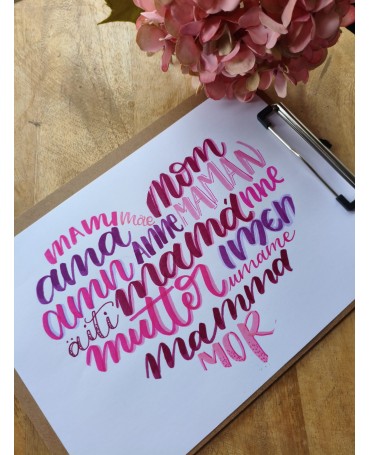 mom
MAMI mãe MAMAN
ama ANNE nne
amn mamá IMEN
äiti mutter umame
mamma
MOR